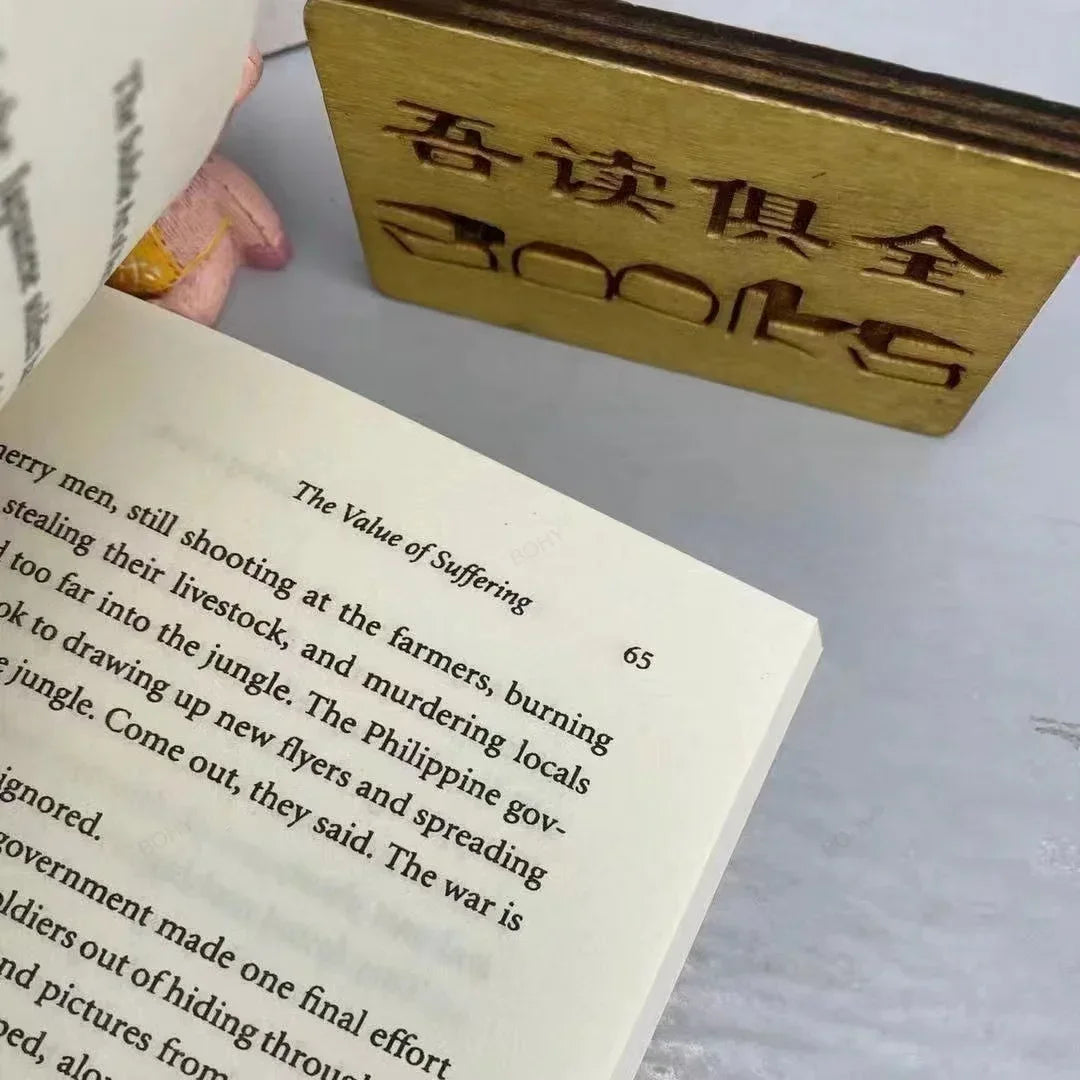 吾读俱全
BOOKS
The Value of Suffering
65
merry men, still shooting at the farmers, burning
stealing their livestock, and murdering locals
too far into the jungle. The Philippine gov-
ok to drawing up new flyers and spreading
jungle. Come out, they said. The war is
ignored.
government made one final effort
oldiers out of hiding through
nd pictures from
ped, alo
BOHY
BOHY
BOHY